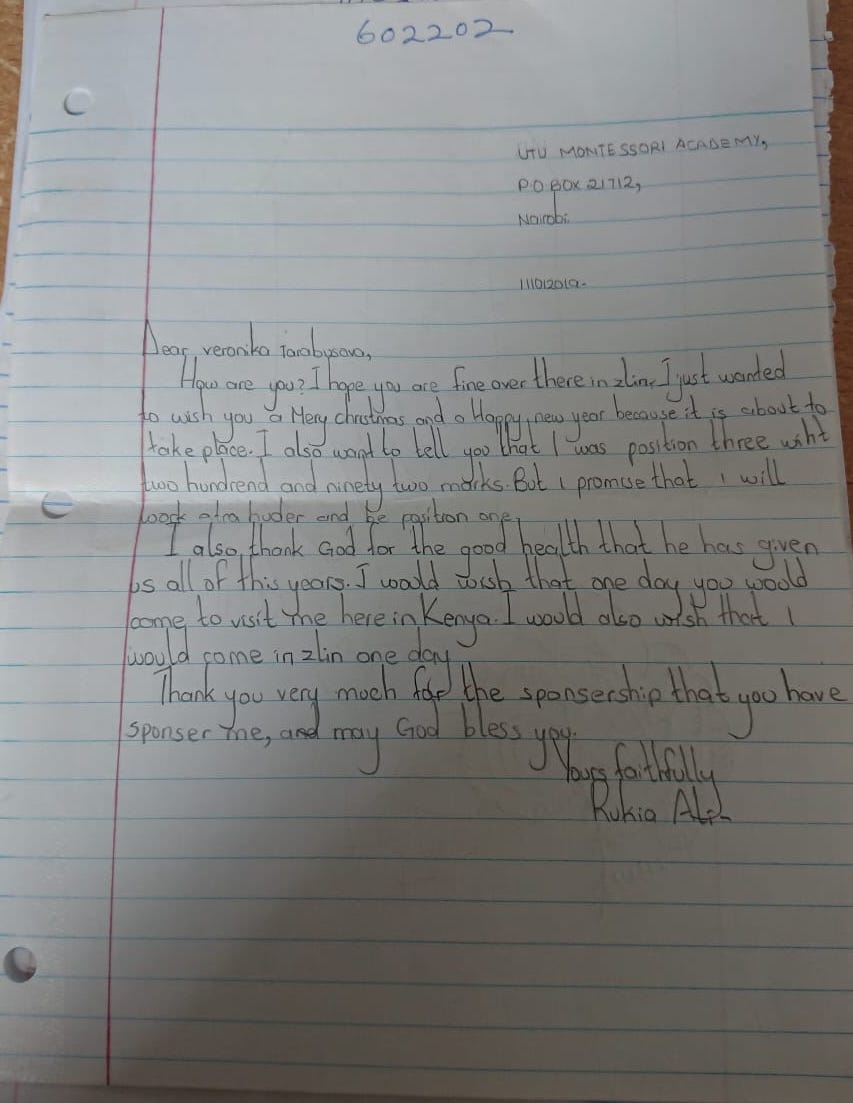 602202
UTU MONTESSORI ACADEMY,
P.O BOX 21712,
Nairobi
Dear veronika Tarabusova,
How are you? I hope you are fine over there in zlin, I just wanted
to wish you a Mery christmas and a Happy new year because it is about to
take place. I also want to tell you that I was position three wiht
two hundrend and ninety two marks. But I promise that I will
work and be position one,
I also thank God for the good health that he has given
us all of this years. I would wish that one day you would
come to visit me here in Kenya. I would also wish that I
would come in zlin one day
Thank you very much for the sponsership that you have
sponser me, and may God bless you.
Yours faithfully
Rukia